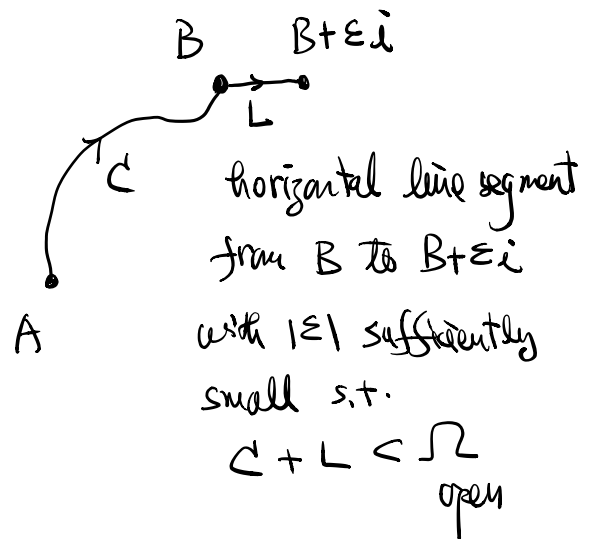 B B+εi
L
C
horizontal line segment
from B to B+εi
A with |ε| sufficiently
small s.t.
C + L ⊂ Ω
open